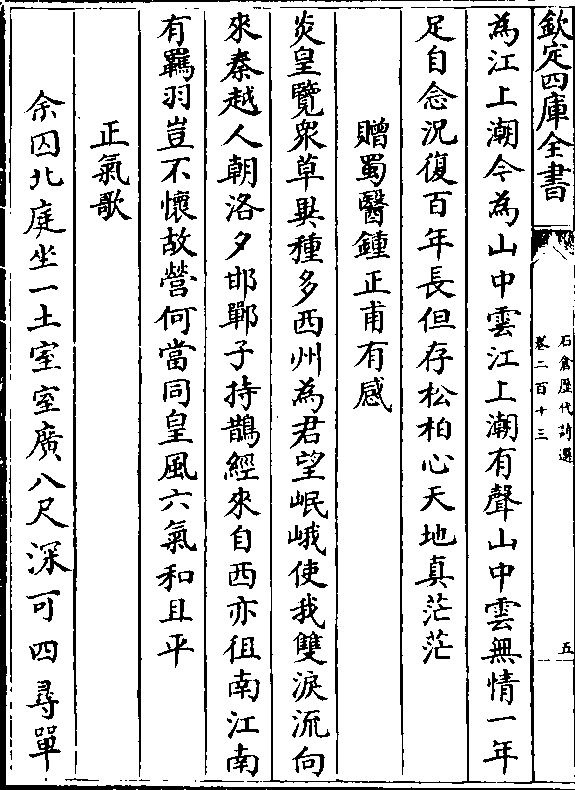 欽定四庫全書
石倉歷代詩選
卷二百十三
五
為江上潮今為山中雲江上潮有聲山中雲無情一年
足自念況復百年長但存松柏心天地真茫茫
贈蜀醫鍾正甫有感
炎皇覽衆草異種多西州為君望岷峨使我雙淚流向
來秦越人朝洛夕邯鄲子持鵲經來自西亦徂南江南
有羈羽豈不懷故營何當同皇風六氣和且平
正氣歌
余囚北庭坐一土室室廣八尺深可四尋單